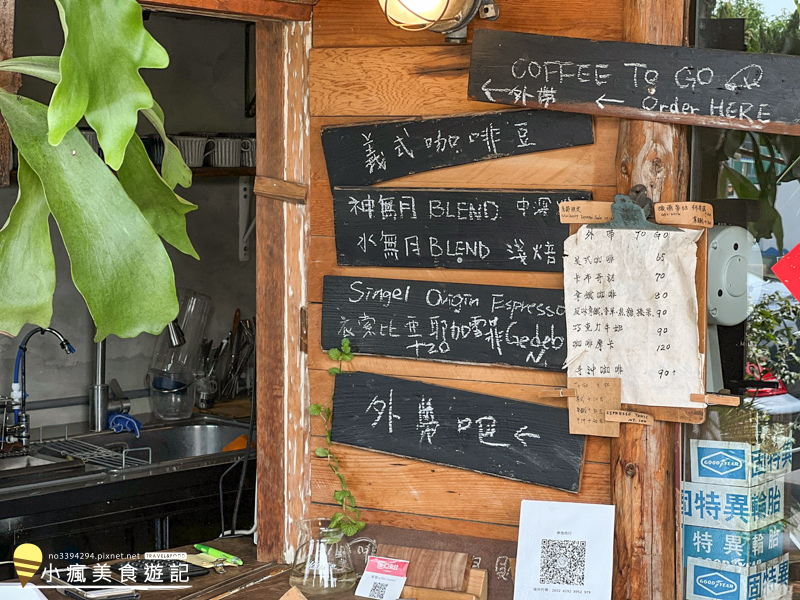 COFFEE To GO
←外帶 ← Order HERE
義式咖啡豆
神無月 BLEND 中深
水無月 BLEND 淺焙
Singel Origin Espresso
衣索比亞 耶加雪菲 Gedeb
+20 N
外帶吧←
外帶 TO GO
美式咖啡 65
卡布奇諾 70
拿鐵咖啡 80
90
巧克力牛奶 90
咖啡摩卡 120
手沖咖啡 90↑
ESPRESSO TONIC
GOODYEAR 固
固特異輪胎
特異輪胎
GOODYEAR 固
no3394294.pixnet.net TRAVEL&FOOD
小瘋美食遊記